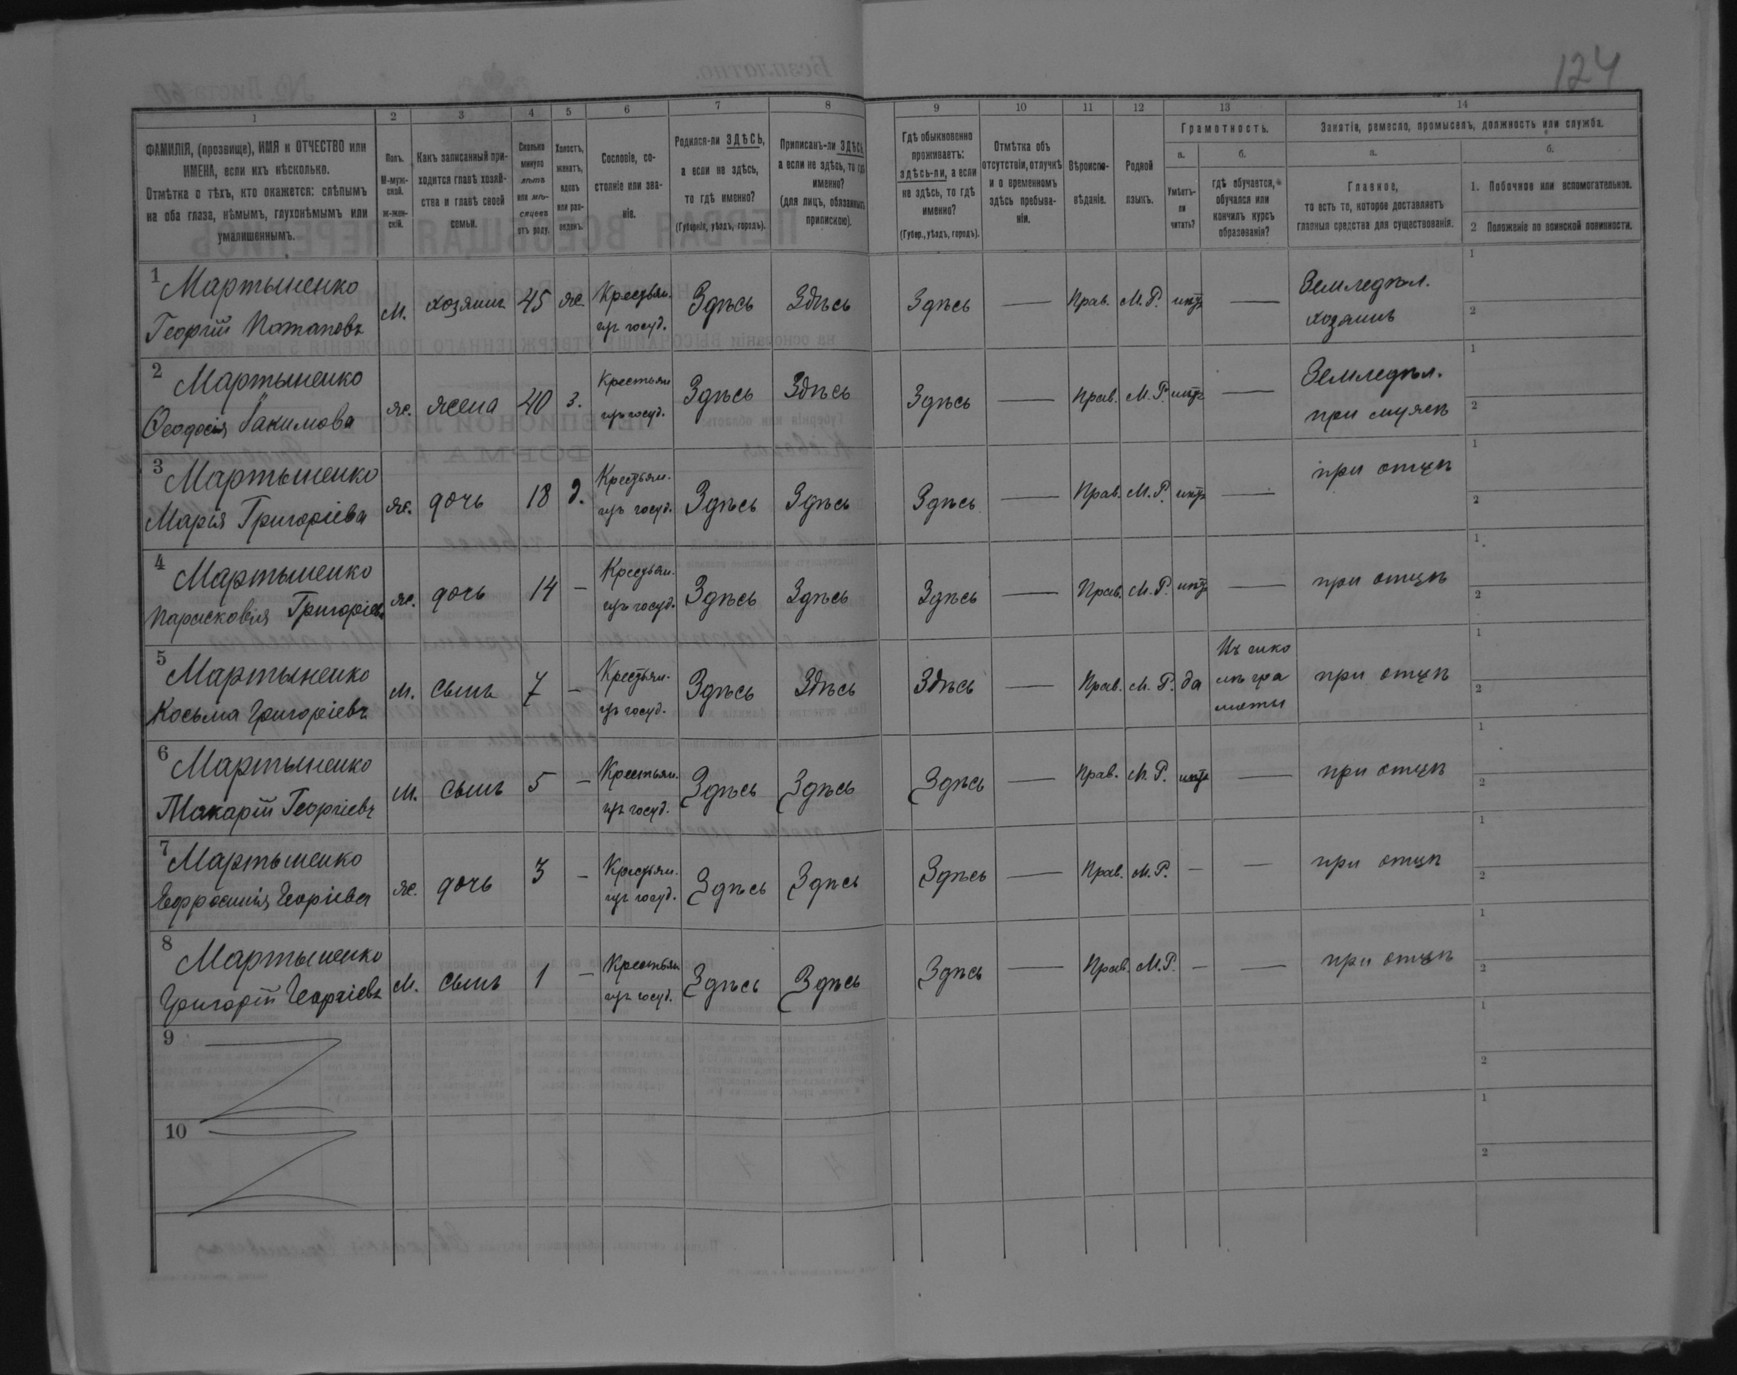 124
1 2 3 4 5 6 7 8 9 10 11 12 13 14
ФАМИЛІЯ, (прозвище), ИМЯ и ОТЧЕСТВО или
ИМЕНА, если ихъ нѣсколько.
Отмѣтка о тѣхъ, кто окажется: слѣпымъ
на оба глаза, нѣмымъ, глухонѣмымъ или
умалишеннымъ.
Полъ.
М-муж-
ской.
ж-жен-
скій.
Какъ записанный при-
ходится главѣ хозяй-
ства и главѣ своей
семьи.
Сколько
минуло
лѣтъ
или мѣ-
сяцевъ
отъ роду.
Холостъ,
женатъ,
вдовъ
или раз-
веденъ.
Сословіе, со-
стояніе или зва-
ніе.
Родился-ли ЗДѢСЬ,
а если не здѣсь,
то гдѣ именно?
(Губернія, уѣздъ, городъ).
Приписанъ-ли ЗДѢСЬ,
а если не здѣсь, то гдѣ
именно?
(для лицъ, обязанныхъ
припискою).
Гдѣ обыкновенно
проживаетъ:
здѣсь-ли, а если
не здѣсь, то гдѣ
именно?
(Губер., уѣздъ, городъ).
Отмѣтка объ
отсутствіи, отлучкѣ
и о временномъ
здѣсь пребыва-
ніи.
Вѣроиспо-
вѣданіе.
Родной
языкъ.
Грамотность.
а.
Умѣетъ-
ли
читать?
б.
гдѣ обучается,
обучался или
кончилъ курсъ
образованія?
Занятіе, ремесло, промыселъ, должность или служба.
а.
Главное,
то есть то, которое доставляетъ
главныя средства для существованія.
б.
1. Побочное или вспомогательное.
2 Положеніе по воинской повинности.
1 Мартыненко
Георгій Потаповъ
М. хозяинъ 45 ж. Крестьян. изъ госуд. Здѣсь Здѣсь Здѣсь — Прав. М.Р. нѣтъ — Земледѣл. хозяинъ 1 2
2 Мартыненко
Ѳеодосія Іакимова
ж. жена 40 з. Крестьян изъ госуд. Здѣсь Здѣсь Здѣсь — Прав. М.Р. нѣтъ — Земледѣл. при мужѣ 1 2
3 Мартыненко
Марія Григоріева
ж. дочь 18 д. Крестьян. изъ госуд. Здѣсь Здѣсь Здѣсь — Прав. М.Р. нѣтъ — при отцѣ 1 2
4 Мартыненко
Парасковія Григоріева
ж. дочь 14 — Крестьян. изъ госуд. Здѣсь Здѣсь Здѣсь — Прав. М.Р. нѣтъ — при отцѣ 1 2
5 Мартыненко
Косьма Григоріевъ
М. сынъ 7 — Крестьян. изъ госуд. Здѣсь Здѣсь Здѣсь — Прав. М.Р. да Въ шко
лѣ гра
моты при отцѣ 1 2
6 Мартыненко
Макарій Георгіевъ
М. сынъ 5 — Крестьян. изъ госуд. Здѣсь Здѣсь Здѣсь — Прав. М.Р. нѣтъ — при отцѣ 1 2
7 Мартыненко
Ефросинія Георгіева
ж. дочь 3 — Крестьян. изъ госуд. Здѣсь Здѣсь Здѣсь — Прав. М.Р. — — при отцѣ 1 2
8 Мартыненко
Григорій Георгіевъ
М. сынъ 1 — Крестьян изъ госуд. Здѣсь Здѣсь Здѣсь — Прав. М.Р. — — при отцѣ 1 2
9 1 2
10 1 2